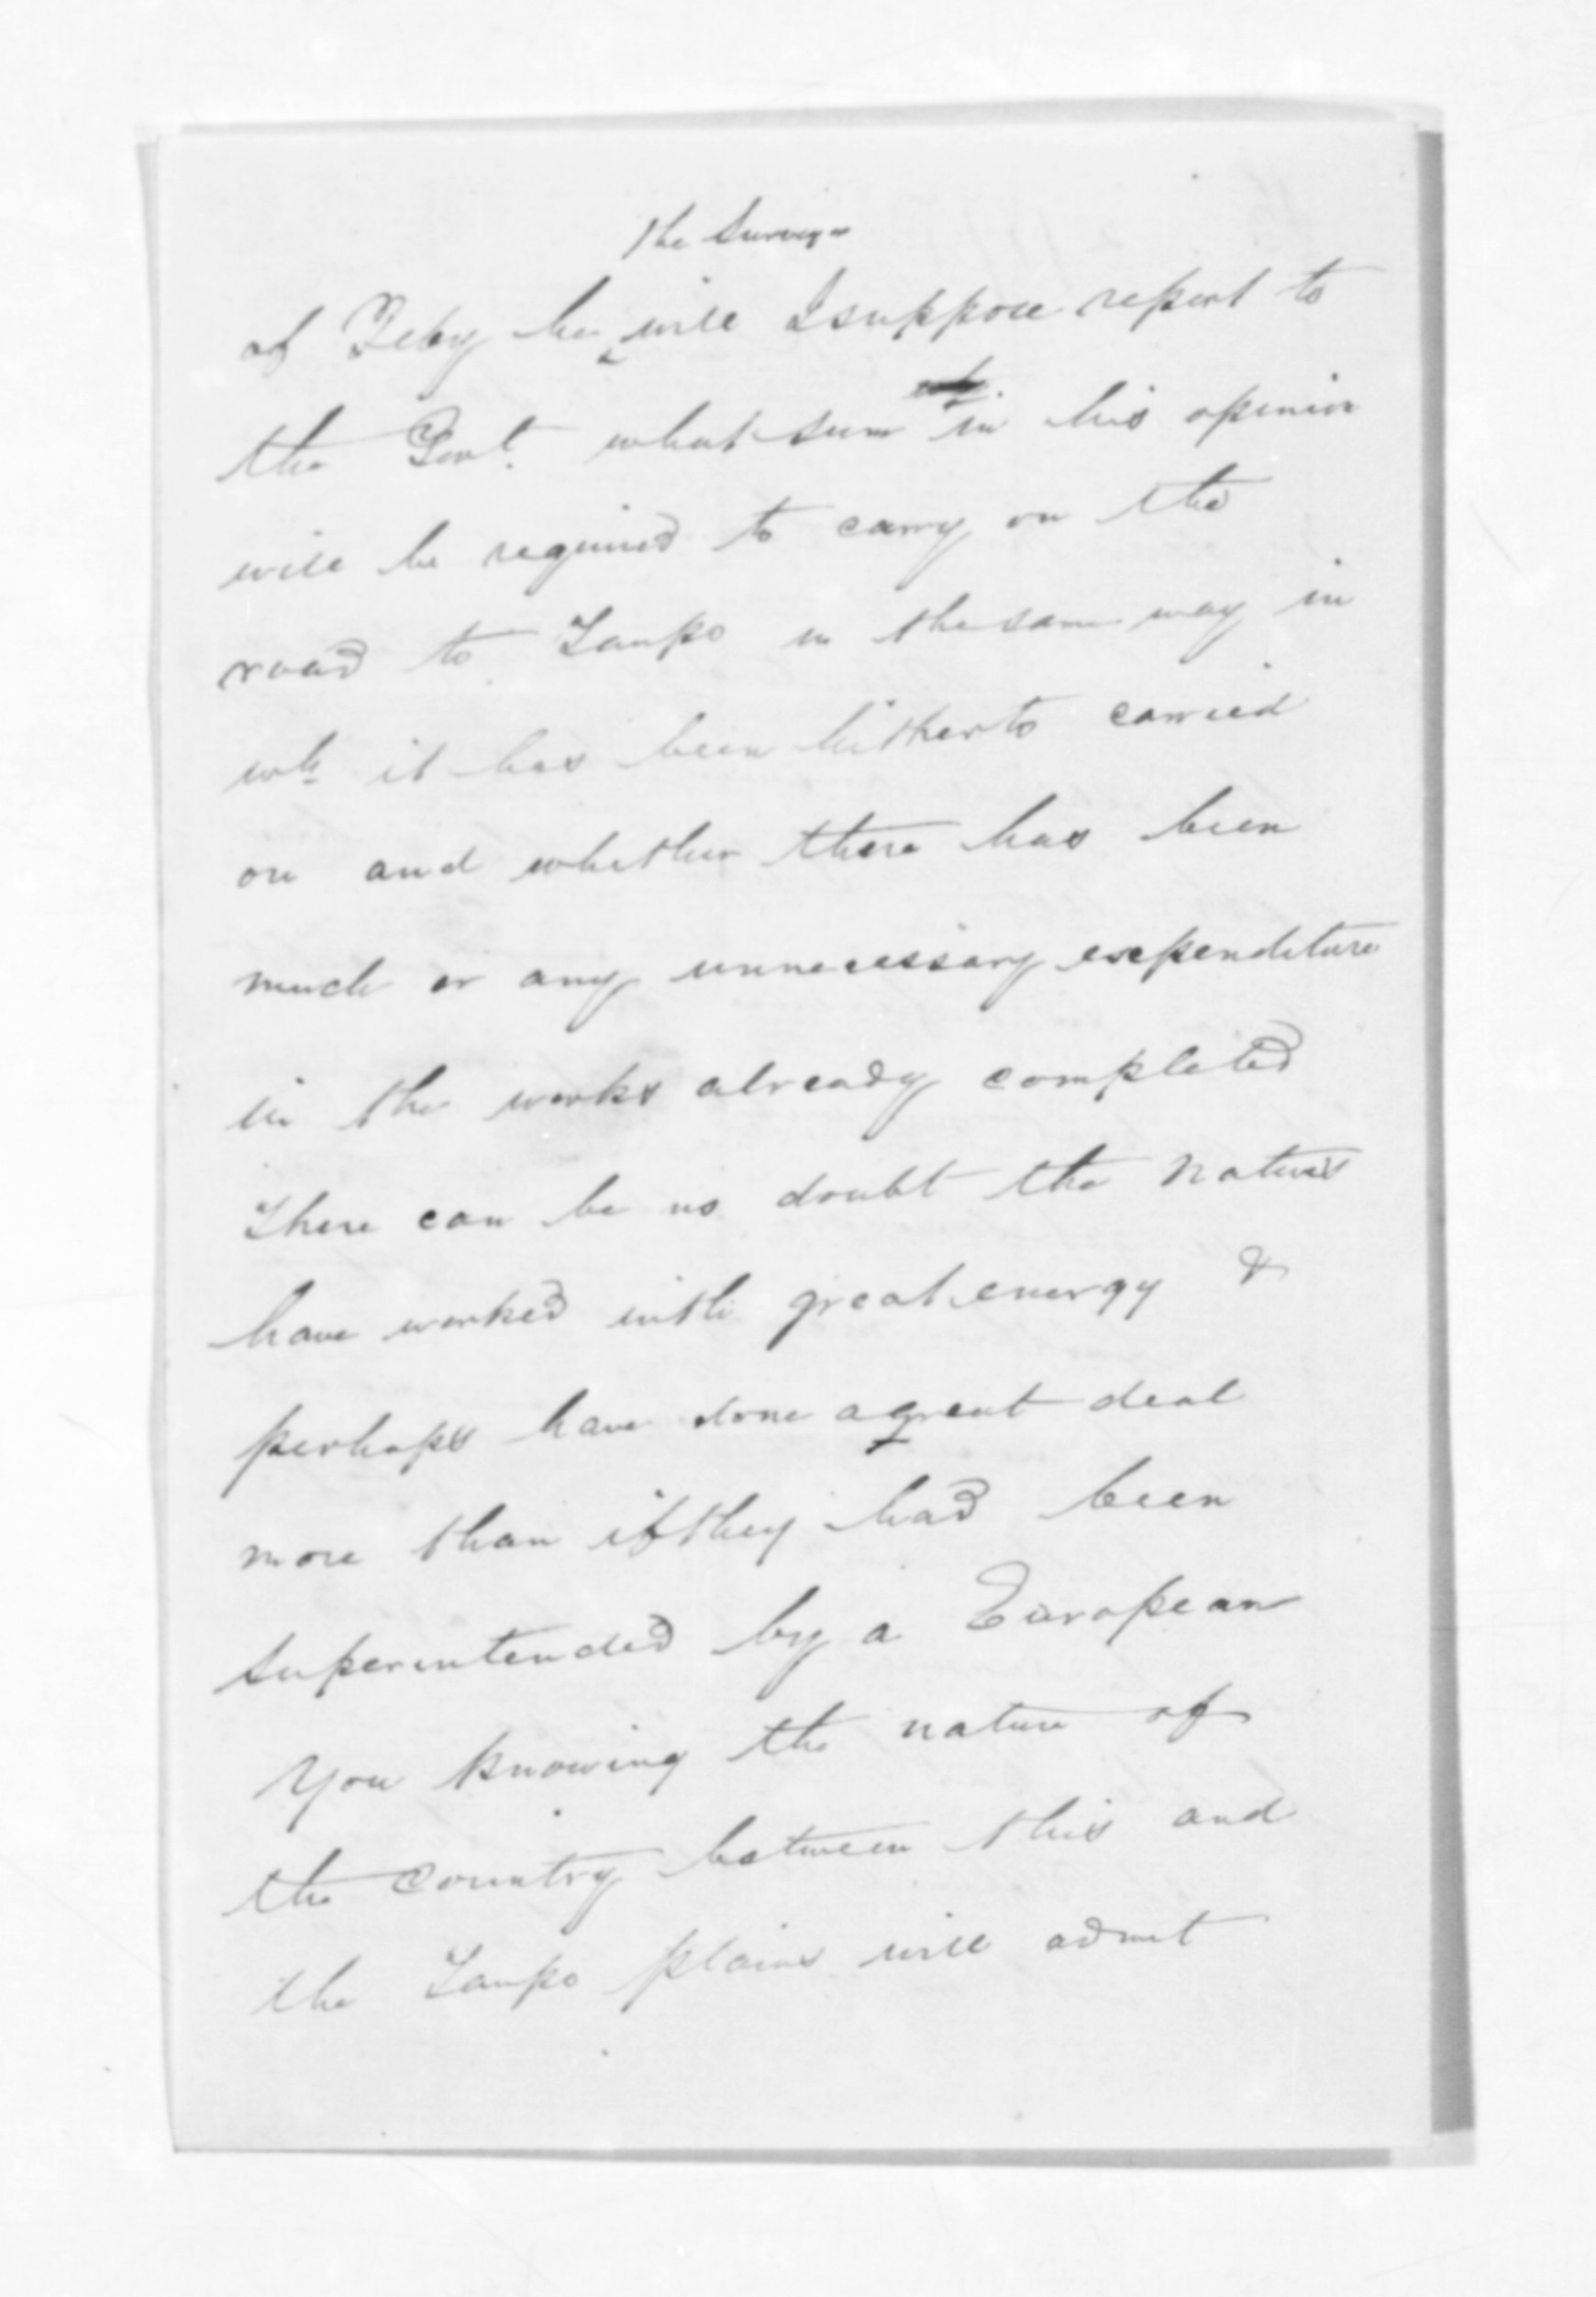 the Surveyor
of Feby he will I suppose report to
the Govt. what sum in his opinion
will be required to carry on the
road to Taupo in the same way in
wh it has been hitherto carried
on and whether there has been
much or any unnecessary expenditure
in the works already completed
There can be no doubt the Natives
have worked with great energy &
perhaps have done a great deal
more than if they had been
superintended by a European
You knowing the nature of
the country between this and
the Taupo plains will admit